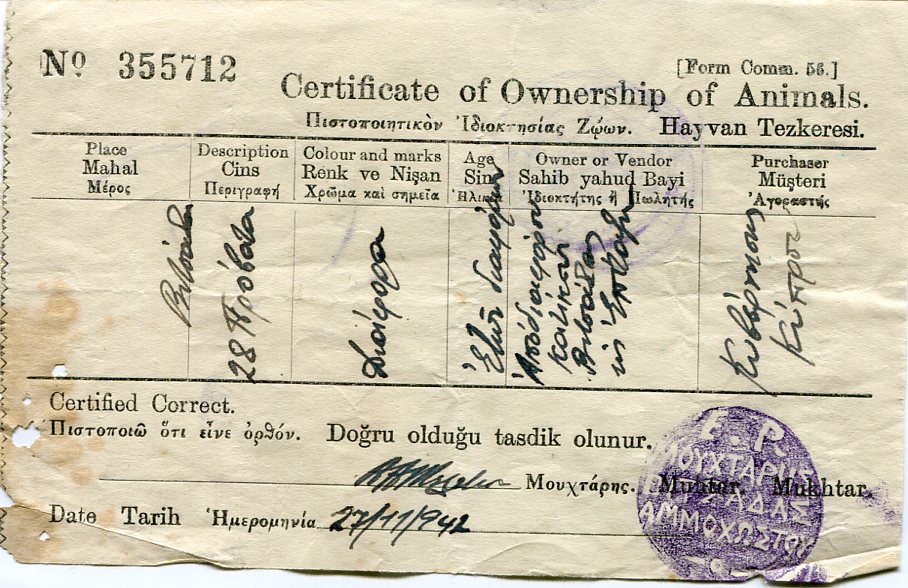 Nº 355712
[Form Comm. 56.]
Certificate of Ownership of Animals.
Πιστοποιητικὸν Ἰδιοκτησίας Ζῴων. Hayvan Tezkeresi.
Place
Mahal
Μέρος
Description
Cins
Περιγραφή
Colour and marks
Renk ve Nişan
Χρῶμα καὶ σημεῖα
Age
Sin
Ἡλικία
Owner or Vendor
Sahib yahud Bayi
Ἰδιοκτήτης ἢ Πωλητής
Purchaser
Müşteri
Ἀγοραστής
28 Πρόβατα
Διάφορα
Ἐτῶν διαφόρων
Κυβέρνησις
Κύπρου
Certified Correct.
Πιστοποιῶ ὅτι εἶνε ὀρθόν. Doğru olduğu tasdik olunur.
Μουχτάρης. Muhtar. Mukhtar.
Date Tarih Ἡμερομηνία 27/11/942
Ε. Ρ.
ΜΟΥΧΤΑΡΗΣ
ΑΜΜΟΧΩΣΤΟΥ